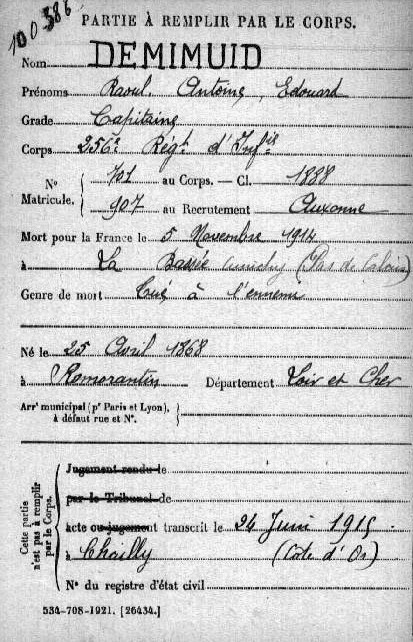 100386
PARTIE À REMPLIR PAR LE CORPS.
Nom DEMIMUID
Prénoms Raoul, Antoine, Edouard
Grade Capitaine
Corps 256e Régt d'Infie
N° Matricule. { 701 au Corps. — Cl. 1888
907 au Recrutement Auxonne
Mort pour la France le 5 Novembre 1914
à La Bassée (Pas de Calais)
Genre de mort Tué à l'ennemi
Né le 25 Avril 1868
à Romorantin Département Loir et Cher
Arrt municipal (pr Paris et Lyon), à défaut rue et N°. }
Cette partie n'est pas à remplir par le Corps. {
Jugement rendu le
par le Tribunal de
acte ou jugement transcrit le 24 Juin 1915
à Chailly (Côte d'Or)
N° du registre d'état civil
534-708-1921. [26434.]